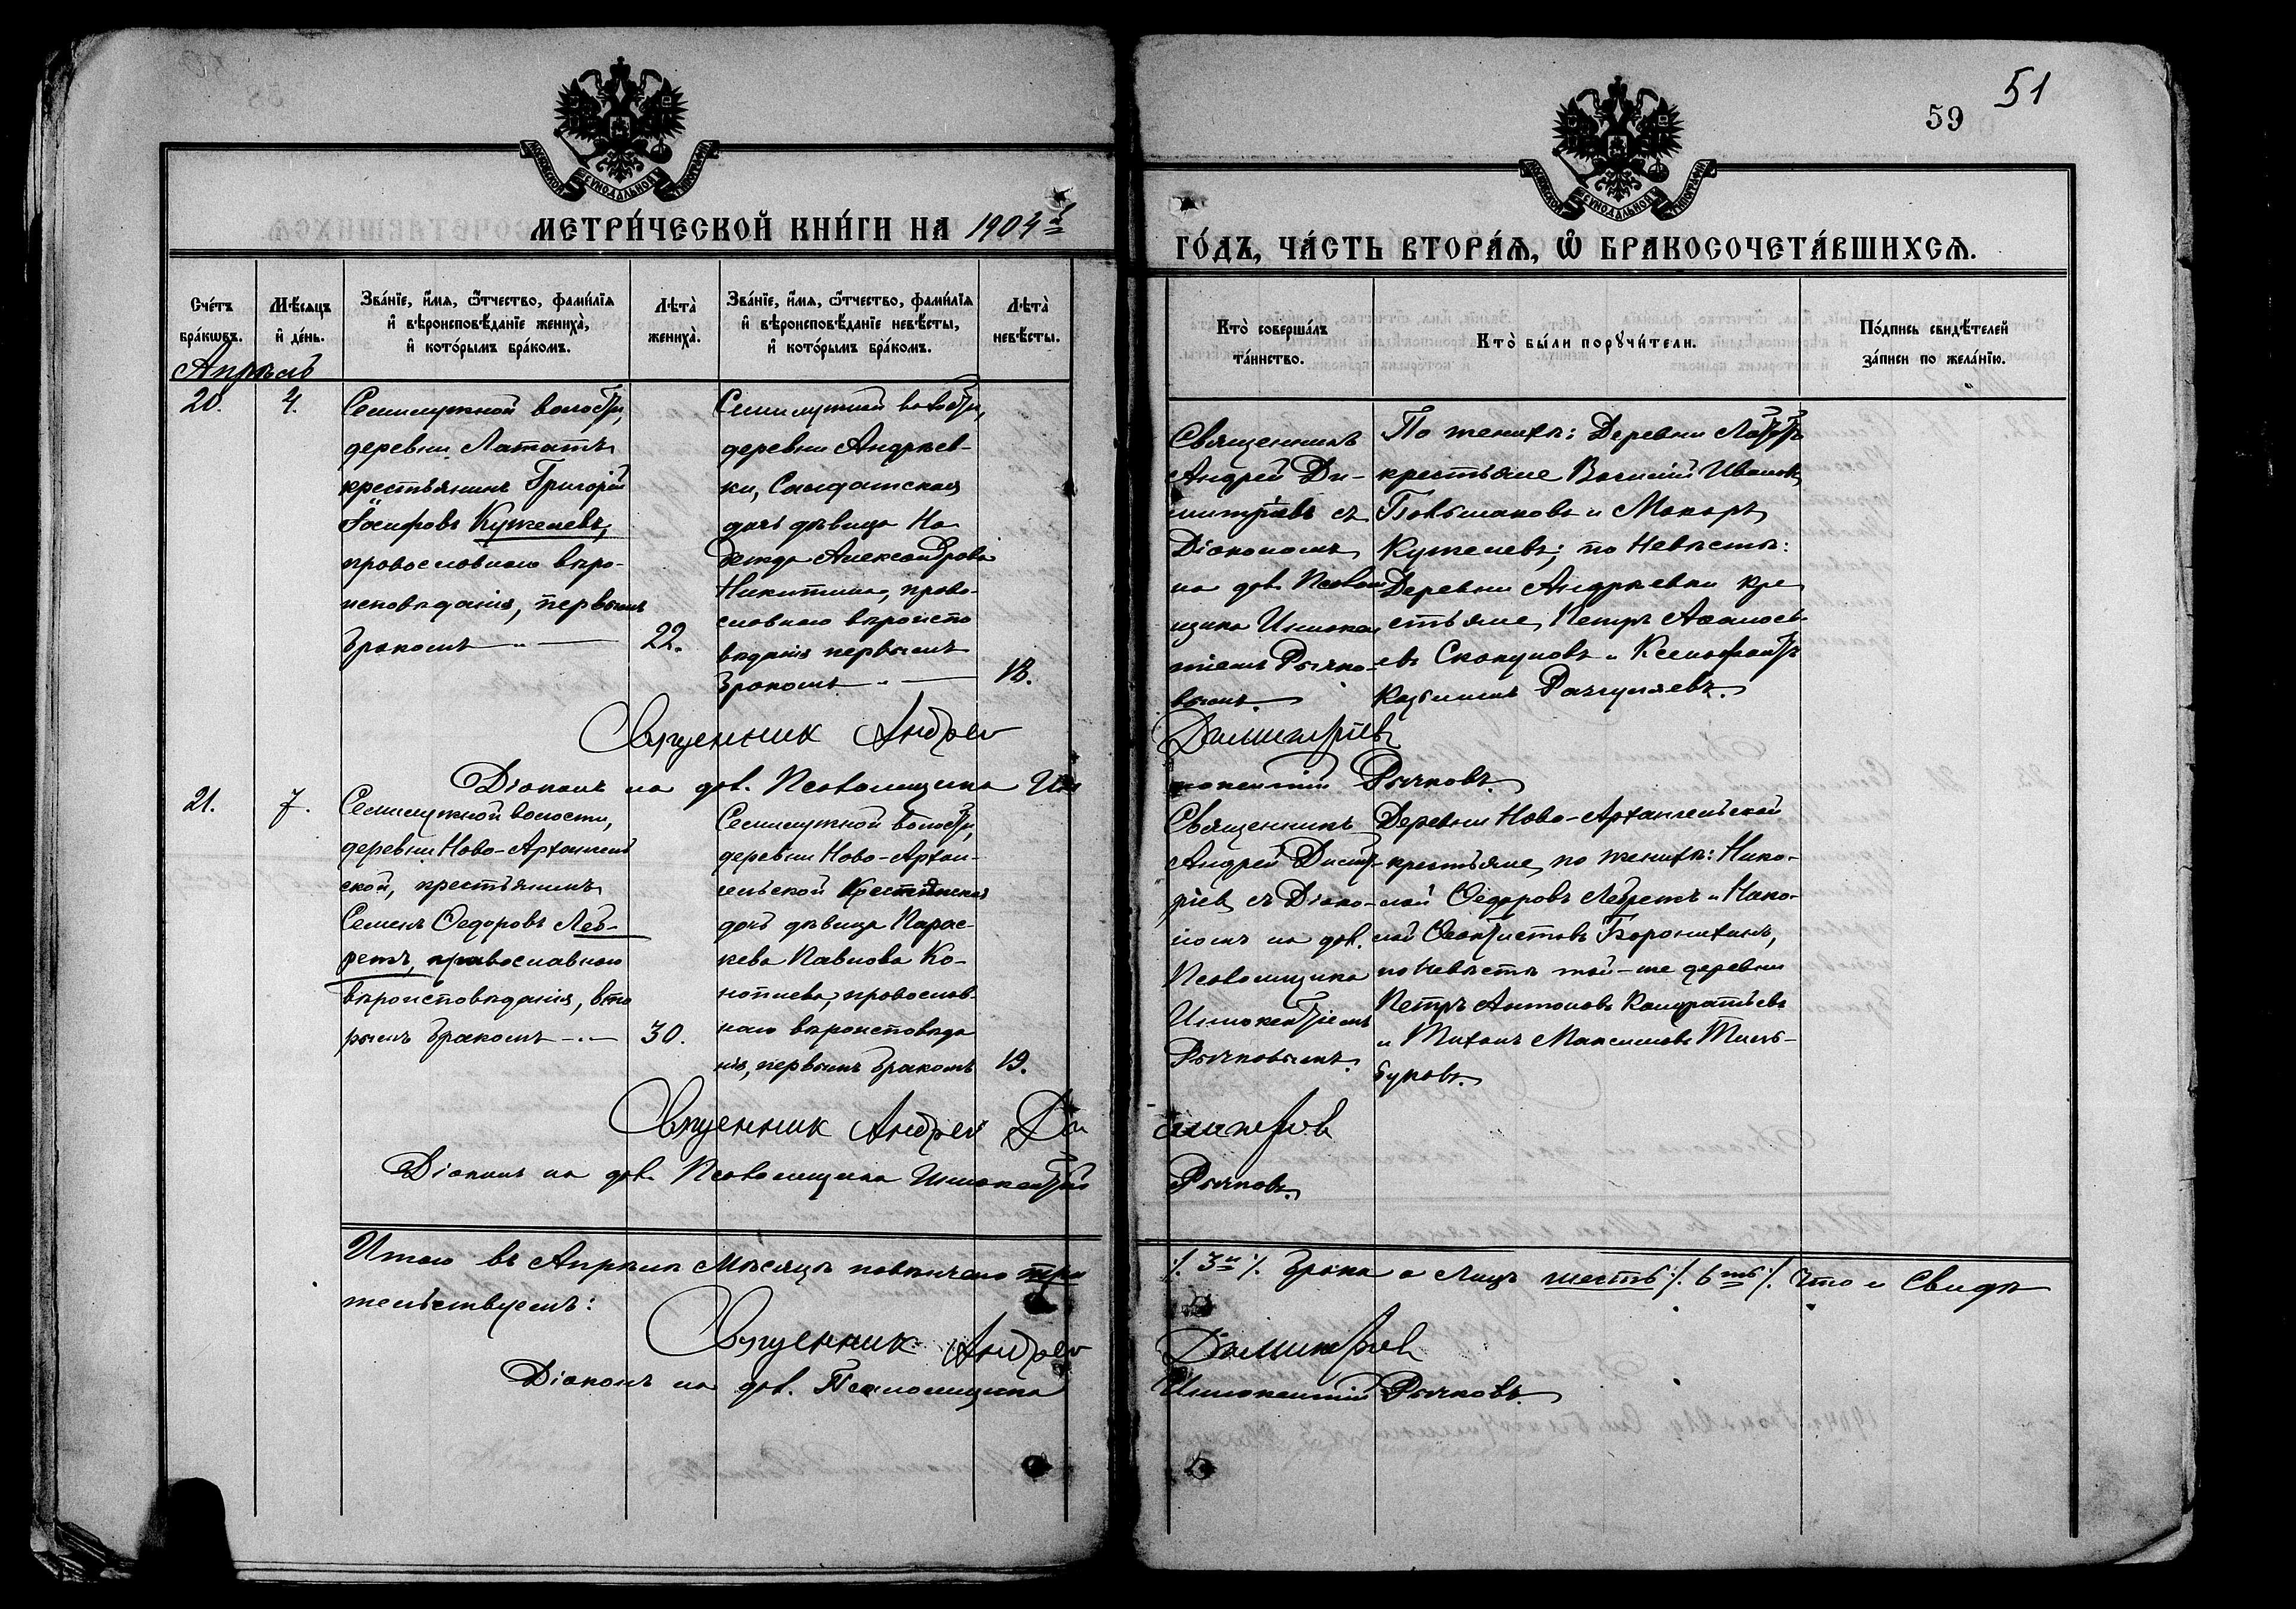 59 51
МЕТРИ́ЧЕСКОЙ КНИ́ГИ НА 1904 й
ГО́ДЪ, ЧА́СТЬ ВТОРА́Ѧ, Ѽ БРАКОСОЧЕТА́ВШИХСѦ.
Сче́тъ бра́кѡвъ.
Мѣ́сяцъ и҆ де́нь.
Зва́нїе, и҆́мя, ѻ҆́тчество, фами́лїя
и҆ вѣроисповѣ́данїе жениха̀,
и҆ кото́рымъ бра́комъ.
Лѣта̀ жениха̀.
Зва́нїе, и҆́мя, ѻ҆́тчество, фами́лїя
и҆ вѣроисповѣ́данїе невѣ́сты,
и҆ кото́рымъ бра́комъ.
Лѣта̀ невѣ́сты.
Кто̀ соверша́лъ
та́инство.
Кто̀ бы́ли порꙋчи́тели.
По́дпись свидѣ́телей
за́писи по жела́нїю.
Апрѣль
20.
4.
Семилужной волости,
деревни Лататъ
крестьянинъ Григорій
Іосифовъ Кужелевъ,
православнаго вѣро-
исповѣданія, первымъ
бракомъ
22.
Семилужной волости,
деревни Андреев-
ки, Солдатская
дочь дѣвица На
дежда Александрова
Никитина, право-
славнаго вѣроиспо
вѣданія первымъ
бракомъ
18.
Священникъ
Андрей Ди-
митріевъ съ
Діакономъ
на дол. Псалом
щика Инокен
тіемъ Рычко-
вымъ.
По женихѣ: Деревни Лататъ
крестьяне Василій Ивановъ
и Макаръ
Кужелевъ; по Невѣстѣ:
Деревни Андреевки кре
стьяне, Петръ
Скакуновъ и Ксенофонтъ
Козьминъ Разгуляевъ.
Священник Андрей Димитріев
Діаконъ на дол. Псаломщика Инокентій Рычковъ.
21.
7.
Семилужной волости,
деревни Ново-Архангель
ской, крестьянинъ
Семенъ Ѳедоровъ Лав-
ретъ, православнаго
вѣроисповѣданія, вто
рымъ бракомъ
30.
Семилужной волости,
деревни Ново-Архан-
гельской Крестьянская
дочь дѣвица Парас-
кева Павлова Ко-
ноплева, православ-
наго вѣроисповѣда
нія, первымъ бракомъ
19.
Священникъ
Андрей Димит-
ріев съ Діако-
номъ на дол.
Псаломщика
Инокентіемъ
Рычковымъ.
Деревни Ново-Архангельской
крестьяне, по женихѣ: Нико-
лай Ѳедоровъ Лавретъ и Нико-
лай Ѳеоктистовъ
по Невѣстѣ той-же деревни
Петръ Антоновъ Кондратьевъ
и Тихонъ Максимовъ Тим-
буковъ.
Священник Андрей Димитріев
Діаконъ на дол. Псаломщика Инокентій Рычковъ.
Итого въ Апрѣлѣ Мѣсяцѣ повѣнчано три /. 3 и /. Брака а Лицъ шесть /. 6 ть /. Что и Свидѣ
тельствуемъ:
Священник Андрей Димитріев
Діаконъ на дол. Псаломщика Инокентій Рычковъ.